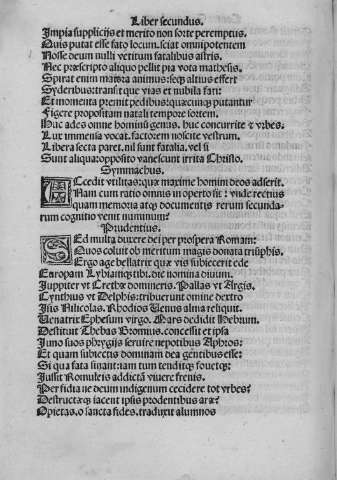 Liber secundus.
Impia supplicijs et merito non sorte peremptus.
Quis putat esse fato locum. sciat omnipotentem
Nosse deum nulli vetitum fatalibus astris.
Nec præscripto aliquo pellit pia vota mathesis.
Spirat enim maiora animus: seq; altius effert
Syderibus: transit que vias et nubila fati:
Et momenta premit pedibus: quæcunq; putantur
Figere propositam natali tempore sortem.
Huc ades omne hominũ genus. huc concurrite & vrbes.
Lux immensa vocat. factorem noscite vestrum.
Libera secta paret. nil sunt fatalia. vel si
Sunt aliqua: opposito vanescunt irrita Christo.
Symmachus.
ACcedit vtilitas: qua maxime homini deos adserit.
Nam cum ratio omnis in operto sit: vnde rectius
quam memoria atq; documentis rerum secunda-
rum cognitio venit numinum?
Prudentius.
SEd multa duxere dei per prospera Romam:
Quos coluit ob meritum magis donata triũphis.
Ergo age bellatrix quæ vis subiecerit ede
Europam Lybiamq; tibi. dic nomina diuum.
Juppiter vt Crethæ domineris. Pallas vt Argis.
Cynthius vt Delphis: tribuerunt omine dextro
Isis Nilicolas. Rhodios Venus alma reliquit.
Venatrix Ephesum virgo. Mars dedidit Hebrum.
Destituit Thebas Bromius. concessit et ipsa
Juno suos phrygijs seruire nepotibus Aphros:
Et quam subiectis dominam dea gentibus esse:
Si qua fata sinant: iam tum tenditq; fouetq;:
Jussit Romuleis addictã viuere frenis.
Per fidia ne deum indigenum cecidere tot vrbes?
Destructæq; iacent ipsis prodentibus aræ?
O pietas. o sancta fides. traduxit alumnos